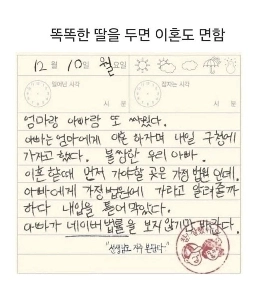 똑똑한 딸을 두면 이혼도 면함
12월 10일 월요일
일어난 시각
시 분
잠자는 시각
시 분
엄마랑 아빠랑 또 싸웠다.
아빠는 엄마에게 이혼 하자며 내일 구청에
가자고 했다. 불쌍한 우리 아빠.
이혼 할때 먼저 가야할 곳은 가정 법원 인데.
아빠에게 가정 법원에 가라고 알려줄까
하다 내입을 틀어 막았다.
아빠가 네이버 법률을 보지 않기만 바란다.